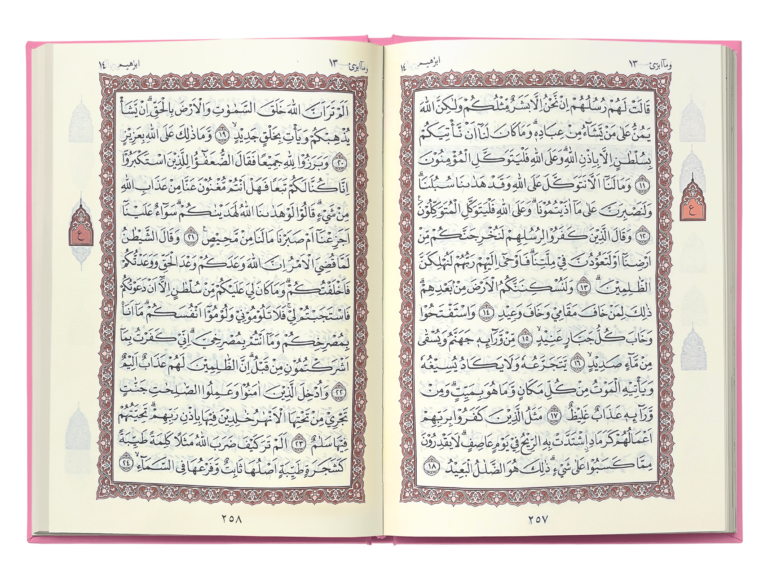 وما ابرئ ١٣ ابرٰهيم ١٤
قَالَتْ لَهُمْ رُسُلُهُمْ اِنْ نَّحْنُ اِلَّا بَشَرٌ مِّثْلُكُمْ وَلٰكِنَّ اللّٰهَ
يَمُنُّ عَلٰى مَنْ يَّشَآءُ مِنْ عِبَادِهٖ ؕ وَمَا كَانَ لَنَاۤ اَنْ نَّاْتِيَكُمْ
بِسُلْطٰنٍ اِلَّا بِاِذْنِ اللّٰهِ ؕ وَعَلَى اللّٰهِ فَلْيَتَوَكَّلِ الْمُؤْمِنُوْنَ
﴿١١﴾ وَمَا لَنَاۤ اَلَّا نَتَوَكَّلَ عَلَى اللّٰهِ وَقَدْ هَدٰىنَا سُبُلَنَا ؕ
وَلَنَصْبِرَنَّ عَلٰى مَاۤ اٰذَيْتُمُوْنَا ؕ وَعَلَى اللّٰهِ فَلْيَتَوَكَّلِ الْمُتَوَكِّلُوْنَ
﴿١٢﴾ وَقَالَ الَّذِيْنَ كَفَرُوْا لِرُسُلِهِمْ لَنُخْرِجَنَّكُمْ مِّنْ
اَرْضِنَاۤ اَوْ لَتَعُوْدُنَّ فِيْ مِلَّتِنَا ؕ فَاَوْحٰۤى اِلَيْهِمْ رَبُّهُمْ لَنُهْلِكَنَّ
الظّٰلِمِيْنَ ﴿١٣﴾ وَلَنُسْكِنَنَّكُمُ الْاَرْضَ مِنْۢ بَعْدِهِمْ ؕ
ذٰلِكَ لِمَنْ خَافَ مَقَامِيْ وَخَافَ وَعِيْدِ ﴿١٤﴾ وَاسْتَفْتَحُوْا
وَخَابَ كُلُّ جَبَّارٍ عَنِيْدٍ ﴿١٥﴾ مِّنْ وَّرَآئِهٖ جَهَنَّمُ وَيُسْقٰى
مِنْ مَّآءٍ صَدِيْدٍ ﴿١٦﴾ يَّتَجَرَّعُهٗ وَلَا يَكَادُ يُسِيْغُهٗ
وَيَاْتِيْهِ الْمَوْتُ مِنْ كُلِّ مَكَانٍ وَّمَا هُوَ بِمَيِّتٍ ؕ وَمِنْ
وَّرَآئِهٖ عَذَابٌ غَلِيْظٌ ﴿١٧﴾ مَثَلُ الَّذِيْنَ كَفَرُوْا بِرَبِّهِمْ
اَعْمَالُهُمْ كَرَمَادِ ۨاشْتَدَّتْ بِهِ الرِّيْحُ فِيْ يَوْمٍ عَاصِفٍ ؕ لَا يَقْدِرُوْنَ
مِمَّا كَسَبُوْا عَلٰى شَيْءٍ ؕ ذٰلِكَ هُوَ الضَّلٰلُ الْبَعِيْدُ ﴿١٨﴾
ع
٢٥٧
وما ابرئ ١٣ ابرٰهيم ١٤
اَلَمْ تَرَ اَنَّ اللّٰهَ خَلَقَ السَّمٰوٰتِ وَالْاَرْضَ بِالْحَقِّ ؕ اِنْ يَّشَاْ
يُذْهِبْكُمْ وَيَاْتِ بِخَلْقٍ جَدِيْدٍ ﴿١٩﴾ وَّمَا ذٰلِكَ عَلَى اللّٰهِ بِعَزِيْزٍ
﴿٢٠﴾ وَبَرَزُوْا لِلّٰهِ جَمِيْعًا فَقَالَ الضُّعَفٰٓؤُا لِلَّذِيْنَ اسْتَكْبَرُوْۤا
اِنَّا كُنَّا لَكُمْ تَبَعًا فَهَلْ اَنْتُمْ مُّغْنُوْنَ عَنَّا مِنْ عَذَابِ اللّٰهِ
مِنْ شَيْءٍ ؕ قَالُوْا لَوْ هَدٰىنَا اللّٰهُ لَهَدَيْنٰكُمْ ؕ سَوَآءٌ عَلَيْنَاۤ
اَجَزِعْنَاۤ اَمْ صَبَرْنَا مَا لَنَا مِنْ مَّحِيْصٍ ﴿٢١﴾ وَقَالَ الشَّيْطٰنُ
لَمَّا قُضِيَ الْاَمْرُ اِنَّ اللّٰهَ وَعَدَكُمْ وَعْدَ الْحَقِّ وَوَعَدْتُّكُمْ
فَاَخْلَفْتُكُمْ ؕ وَمَا كَانَ لِيَ عَلَيْكُمْ مِّنْ سُلْطٰنٍ اِلَّاۤ اَنْ دَعَوْتُكُمْ
فَاسْتَجَبْتُمْ لِيْ ۚ فَلَا تَلُوْمُوْنِيْ وَلُوْمُوْۤا اَنْفُسَكُمْ ؕ مَاۤ اَنَا
بِمُصْرِخِكُمْ وَمَاۤ اَنْتُمْ بِمُصْرِخِيَّ ؕ اِنِّيْ كَفَرْتُ بِمَاۤ
اَشْرَكْتُمُوْنِ مِنْ قَبْلُ ؕ اِنَّ الظّٰلِمِيْنَ لَهُمْ عَذَابٌ اَلِيْمٌ
﴿٢٢﴾ وَاُدْخِلَ الَّذِيْنَ اٰمَنُوْا وَعَمِلُوا الصّٰلِحٰتِ جَنّٰتٍ
تَجْرِيْ مِنْ تَحْتِهَا الْاَنْهٰرُ خٰلِدِيْنَ فِيْهَا بِاِذْنِ رَبِّهِمْ ؕ تَحِيَّتُهُمْ
فِيْهَا سَلٰمٌ ﴿٢٣﴾ اَلَمْ تَرَ كَيْفَ ضَرَبَ اللّٰهُ مَثَلًا كَلِمَةً طَيِّبَةً
كَشَجَرَةٍ طَيِّبَةٍ اَصْلُهَا ثَابِتٌ وَّفَرْعُهَا فِي السَّمَآءِ ﴿٢٤﴾
ع
٢٥٨